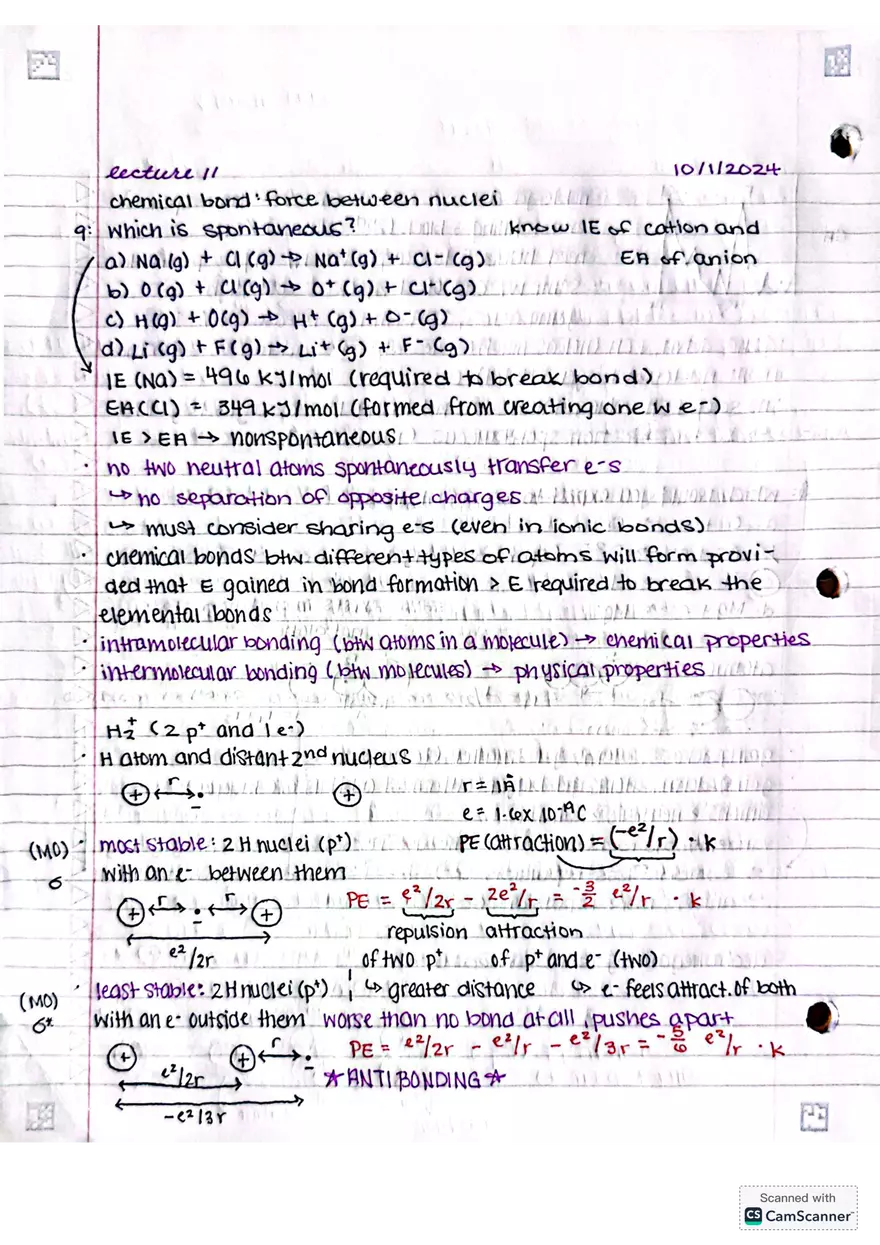 lecture 11 10/1/2024
chemical bond: force between nuclei
q: which is spontaneous? know IE of cation and
a) Na(g) + Cl(g) → Na⁺(g) + Cl⁻(g) EA of anion
b) O(g) + Cl(g) → O⁺(g) + Cl⁻(g)
c) H(g) + O(g) → H⁺(g) + O⁻(g)
d) Li(g) + F(g) → Li⁺(g) + F⁻(g)
IE (Na) = 496 kJ/mol (required to break bond)
EA(Cl) = 349 kJ/mol (formed from creating one w e-)
IE > EA → nonspontaneous
· no two neutral atoms spontaneously transfer e-s
↳ no separation of opposite charges
↳ must consider sharing e-s (even in ionic bonds)
· chemical bonds btw different types of atoms will form provi-
ded that E gained in bond formation > E required to break the
elemental bonds
· intramolecular bonding (btw atoms in a molecule) → chemical properties
· intermolecular bonding (btw molecules) → physical properties
H₂⁺ (2 p⁺ and 1 e-)
· H atom and distant 2nd nucleus
+ r - + r = 1Å
e = 1.6x10⁻¹⁹C
(MO) · most stable: 2 H nuclei (p⁺) PE (attraction) = (-e²/r) · k
σ with an e- between them
+ r - r + PE = e²/2r - 2e²/r = -3/2 e²/r · k
repulsion attraction
e²/2r of two p⁺ of p⁺ and e⁻ (two)
(MO) · least stable: 2 H nuclei (p⁺) ↳ greater distance ↳ e- feels attract. of both
σ* with an e- outside them worse than no bond at all, pushes apart
+ + r - PE = e²/2r - e²/r - e²/3r = -5/6 e²/r · k
e²/2r ☆ANTIBONDING☆
-e²/3r
Scanned with
CS CamScanner